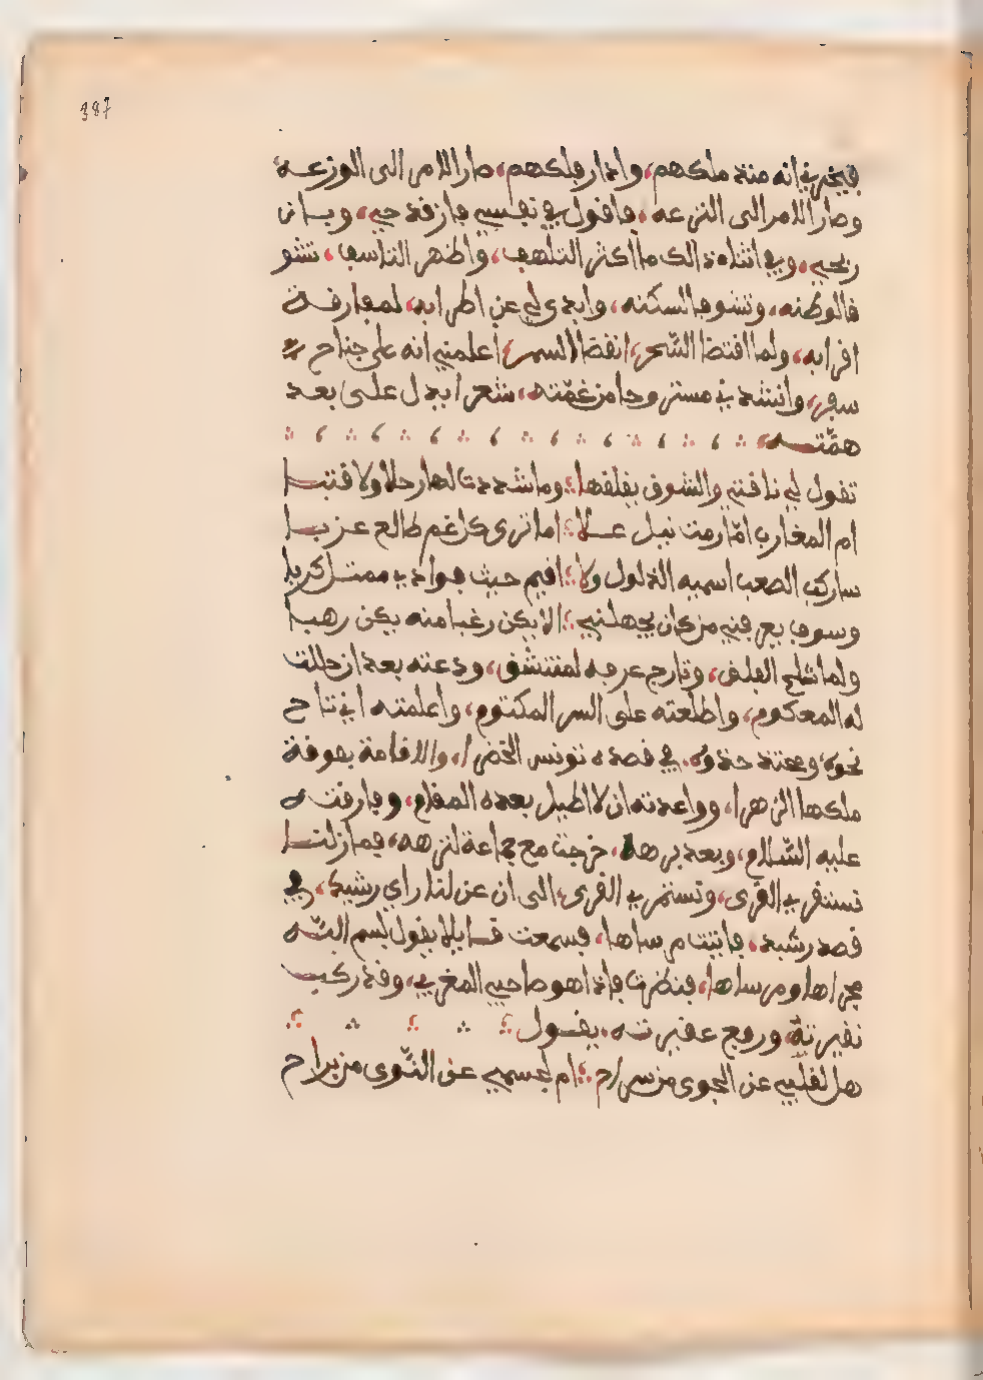 387
فيخبرني انه منذ ملكهم، واندار فلكهم، صار الامر الى الوزعه
وصار الامر الى النزعه، فاقول في نفسي فاز قدحي، وبان
ربحي، وفي اثناء ذالك ما اكثر التلهف، واظهر التاسف، تشو
قا لوطنه، وتشوفا لسكنه، وابدى لي عن اطرابه، لمفارقة
اقرابه، ولما اقتضا الشحر، انقضا السمر، اعلمني انه على جناح
سفر، وانشدني مستروحا من غمّته، شعرا يدل على بعد
همّته
تقول لي ناقتي والشوق يقلقها وما شددت لها رحلا ولا قتبا
ام المغارب امّا رمت نيل علا اما ترى كل نجم طالع غربا
ساركب الصعب اسميه الذلول ولا اقيم حيث فوادي ممتل كربا
وسوف يعرفني من كان يجهلني الا يكن رغبا منه يكن رهبا
ولما شلح الفلق، وتارج عرفه لمنتشق، ودعته بعد ان حللت
له المعكوم، واطلعته على السر المكتوم، واعلمته اني ناح
نحوه ومحتذ حذوه، في قصده تونس الخضرا، والاقامة بعوقة
ملكها الزهرا، وواعدته ان لا اطيل بعده المقام، وفارقته
عليه السّلام، وبعد برهة، خرجت مع جماعة لنزهه، فما زلنا
نستقري القرى، ونستمري القرى، الى ان عن لنا راي رشيد، في
قصد رشيد، فاتيت مرساها، فسمعت قايلا يقول بسم اللّه
مجراها ومرساها، فنظرت فاذا هو صاحبي المغربي، وقد ركب
نقيرته، ورفع عقيرته، يقول
هل لقلبي عن الجوى من سراح ام لجسمي عن النّوى من براح